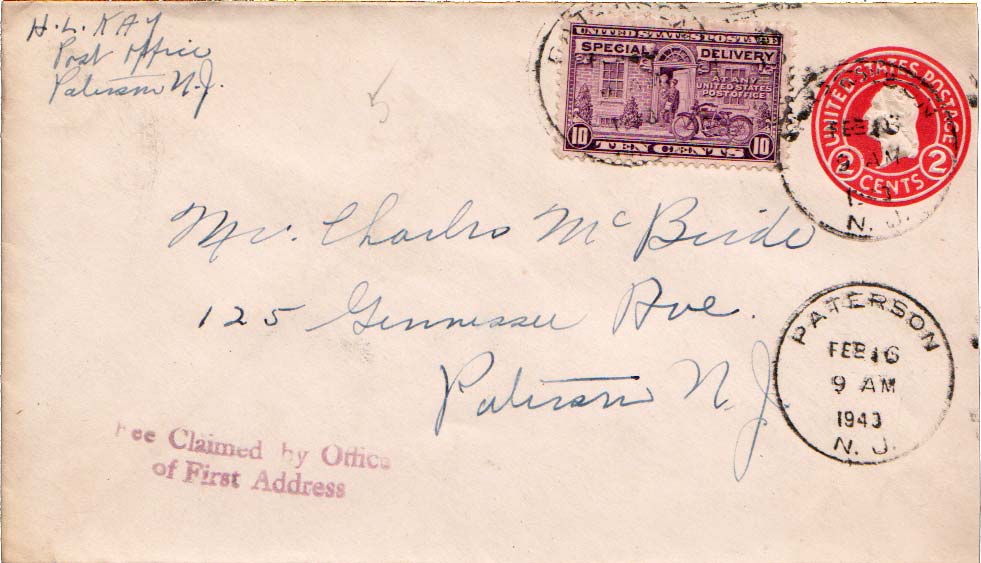 H. L. KAY
Post Office
Paterson N.J.
UNITED STATES POSTAGE
SPECIAL DELIVERY
AT ANY
UNITED STATES
POST OFFICE
10 TEN CENTS 10
UNITED STATES POSTAGE
2 CENTS 2
FEB 16
9 AM
N. J.
Mr. Charles McBride
125 Gennessee Ave.
Paterson N.J.
PATERSON
FEB 16
9 AM
1943
N. J.
Fee Claimed by Office
of First Address